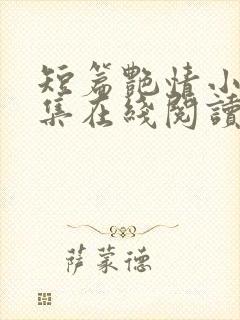 短篇艷情小
集在綫閱讀
萨蒙德